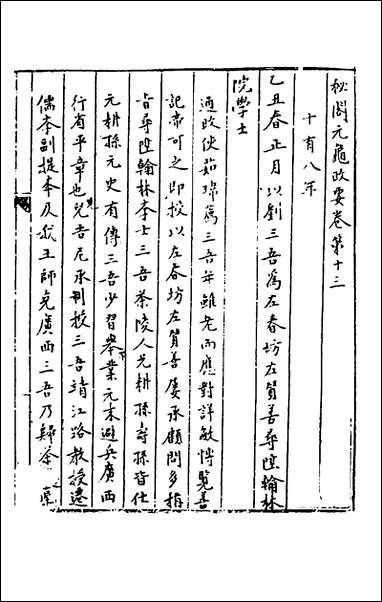 秘閣元龜政要卷第十三
十有八年
乙丑春正月以劉三吾爲左春坊左賛善尋陞翰林
院學士
通政使茹瑺薦三吾年雖老而應對詳敏博覽善
記帝可之即授以左春坊左賛善屡承顧問多稱
旨尋陞翰林李士三吾茶陵人兄耕孫壽孫皆仕
元耕孫元史有傳三吾少習舉業元末避兵廣西
行省平章也兒吉尼承制授三吾靖江路教授遷
儒李副提李及我王師克廣西三吾乃歸茶